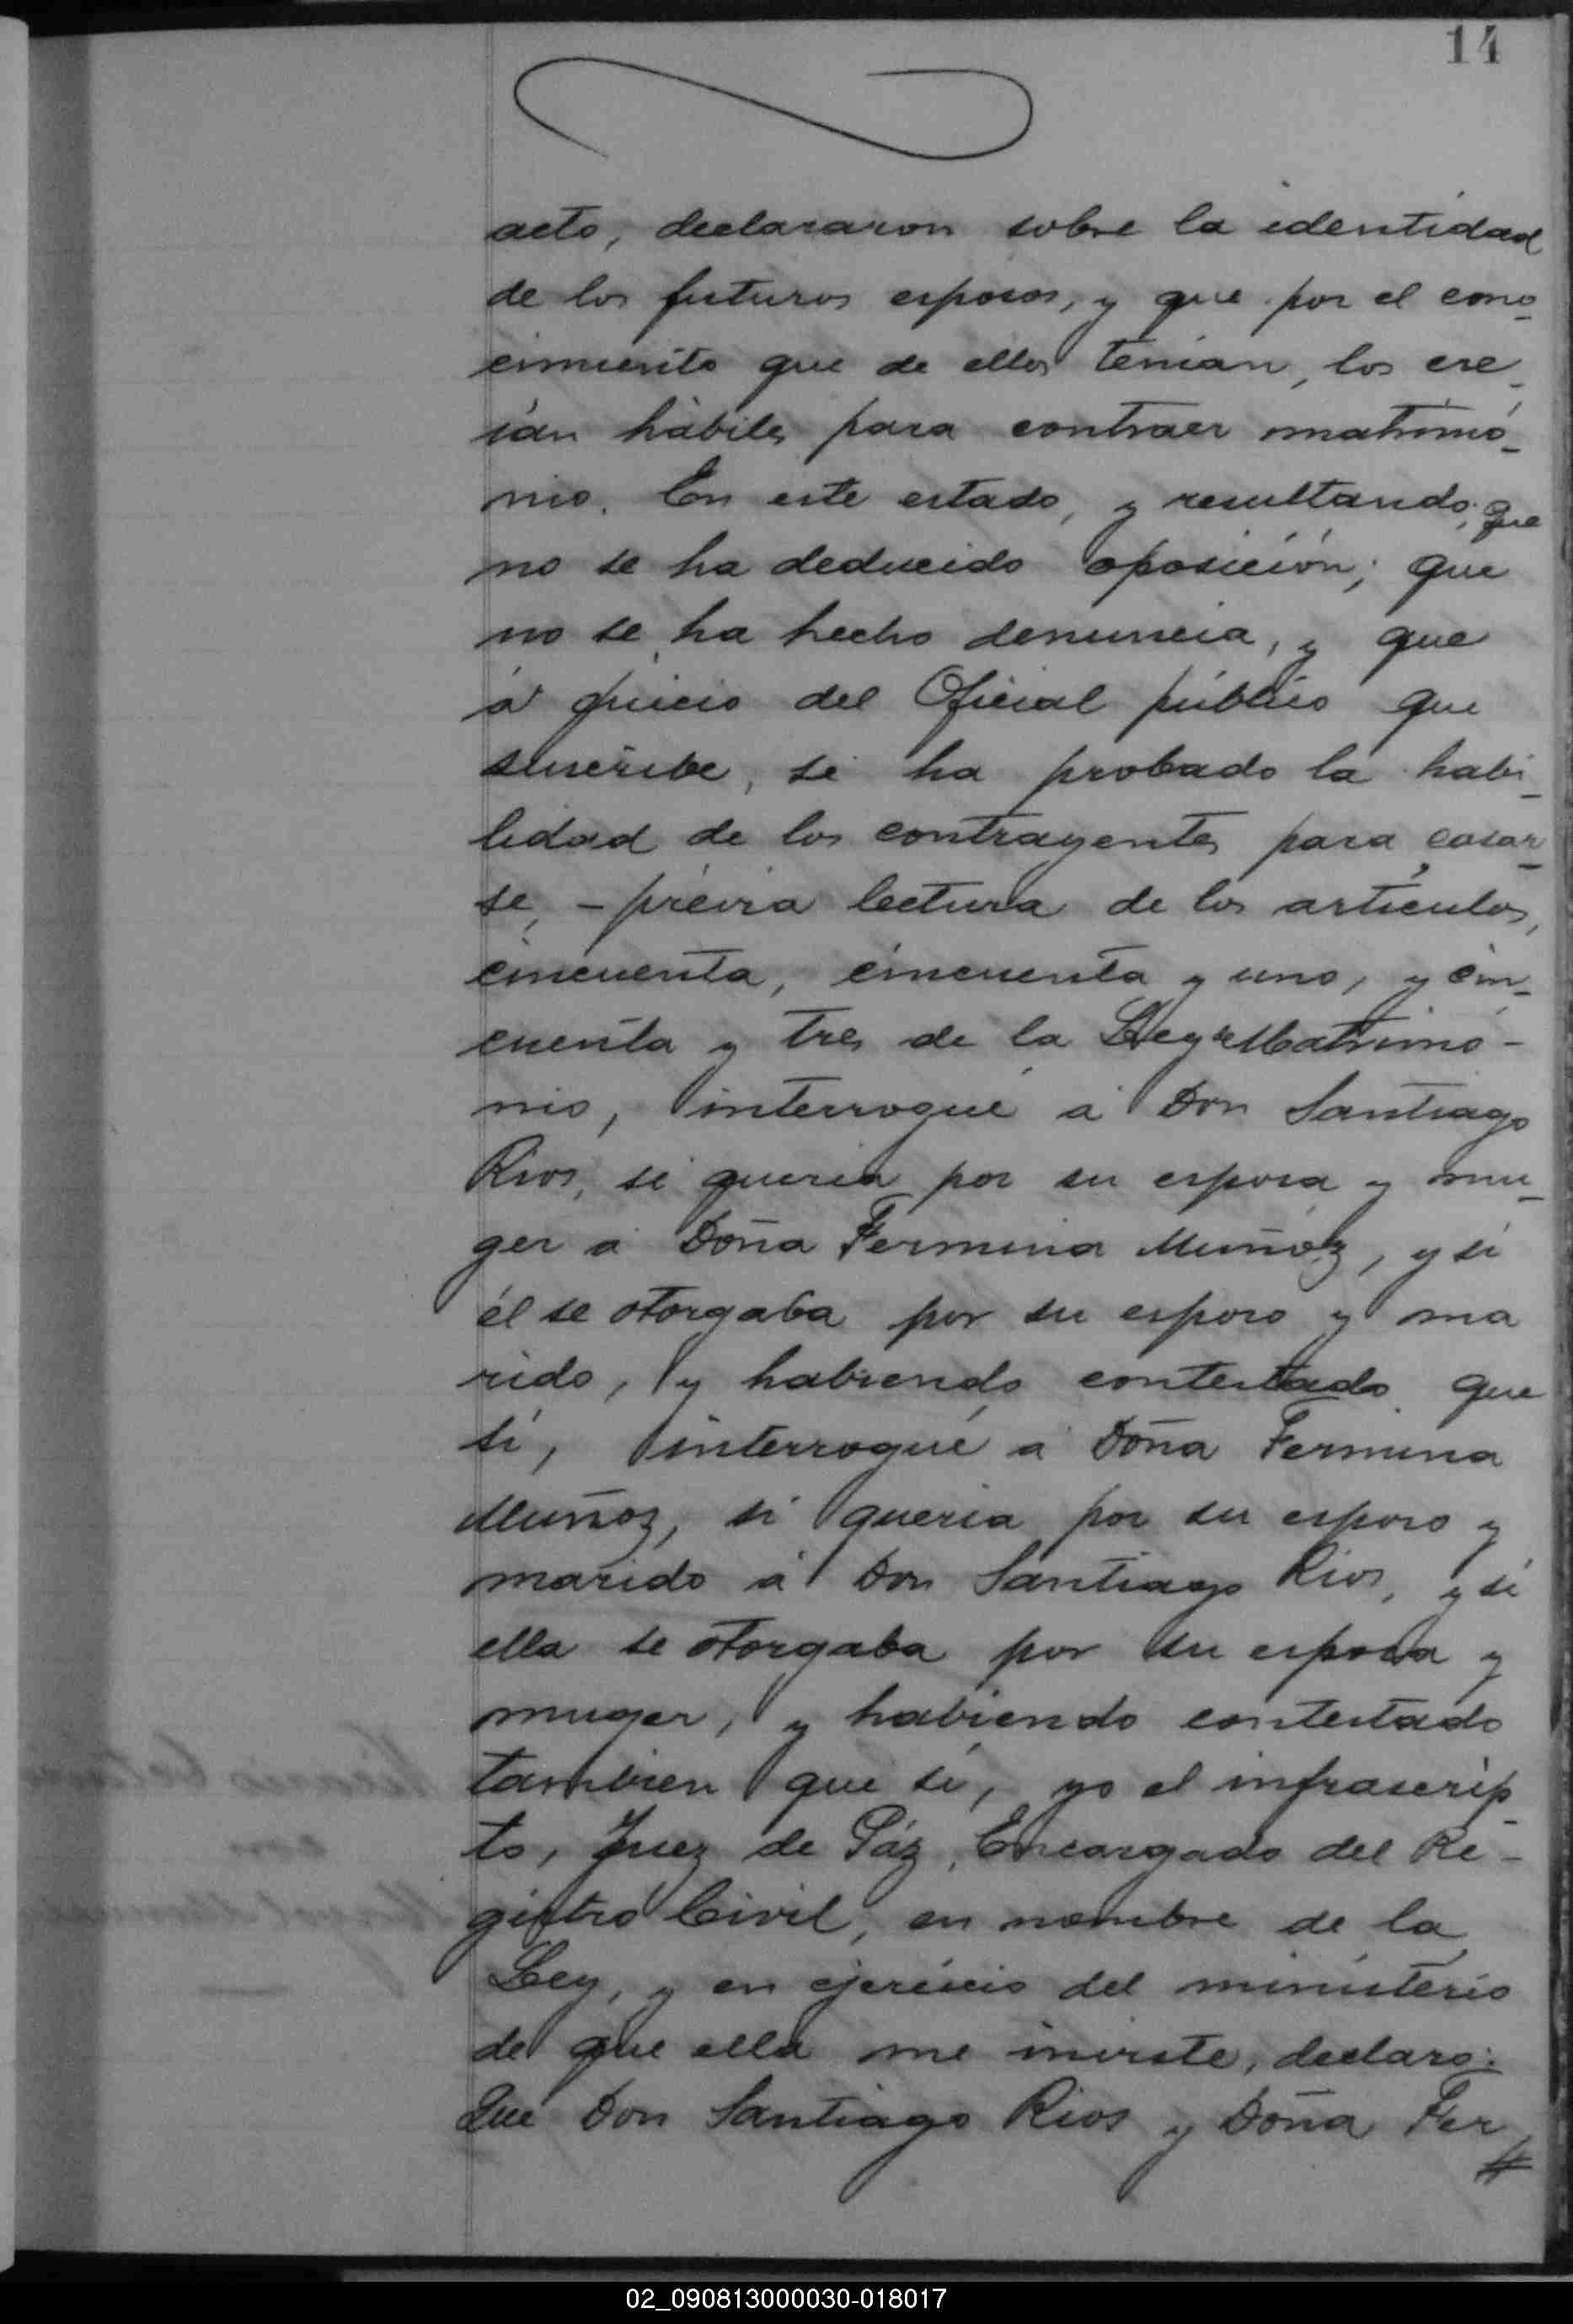 14
acto, declararon sobre la identidad
de los futuros esposos, y que por el cono-
cimiento que de ellos tenian, los cre-
ian hábiles para contraer matrimó-
nio. En este estado, y resultando; que
no se ha deducido oposición; que
no se ha hecho denuncia, y que
á juicio del Oficial público que
suscribe, se ha probado la habi-
lidad de los contrayentes para casar-
se, - prévia lectura de los articulos,
cincuenta, cincuenta y uno, y cin-
cuenta y tres de la Ley de Matrimó-
nio, interrogué á Don Santiago
Rios, si queria por su esposa y mu-
ger á Doña Fermina Muñoz, y si
él se otorgaba por su esposo y ma
rido, y habiendo contestado que
sí, interrogué á Doña Fermina
Muñoz, si queria por su esposo y
marido á Don Santiago Rios, y si
ella se otorgaba por su esposa y
muger, y habiendo contestado
tambien que sí, yo el infrascrip-
to, Juez de Páz, Encargado del Re-
gistro Civil, en nombre de la
Ley, y en ejercicio del ministerio
de que ella me inviste, declaro:
Que Don Santiago Rios y Doña Fer
#
02_090813000030-018017